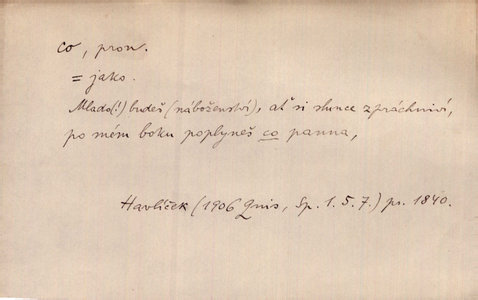 co, pron.
= jako.
Mlado(!) budeš (náboženství), ať si slunce zpráchniví,
po mém boku poplyneš co panna,
Havlíček (1906 Quis, Sp. 1. 5. 7.) pr. 1840.